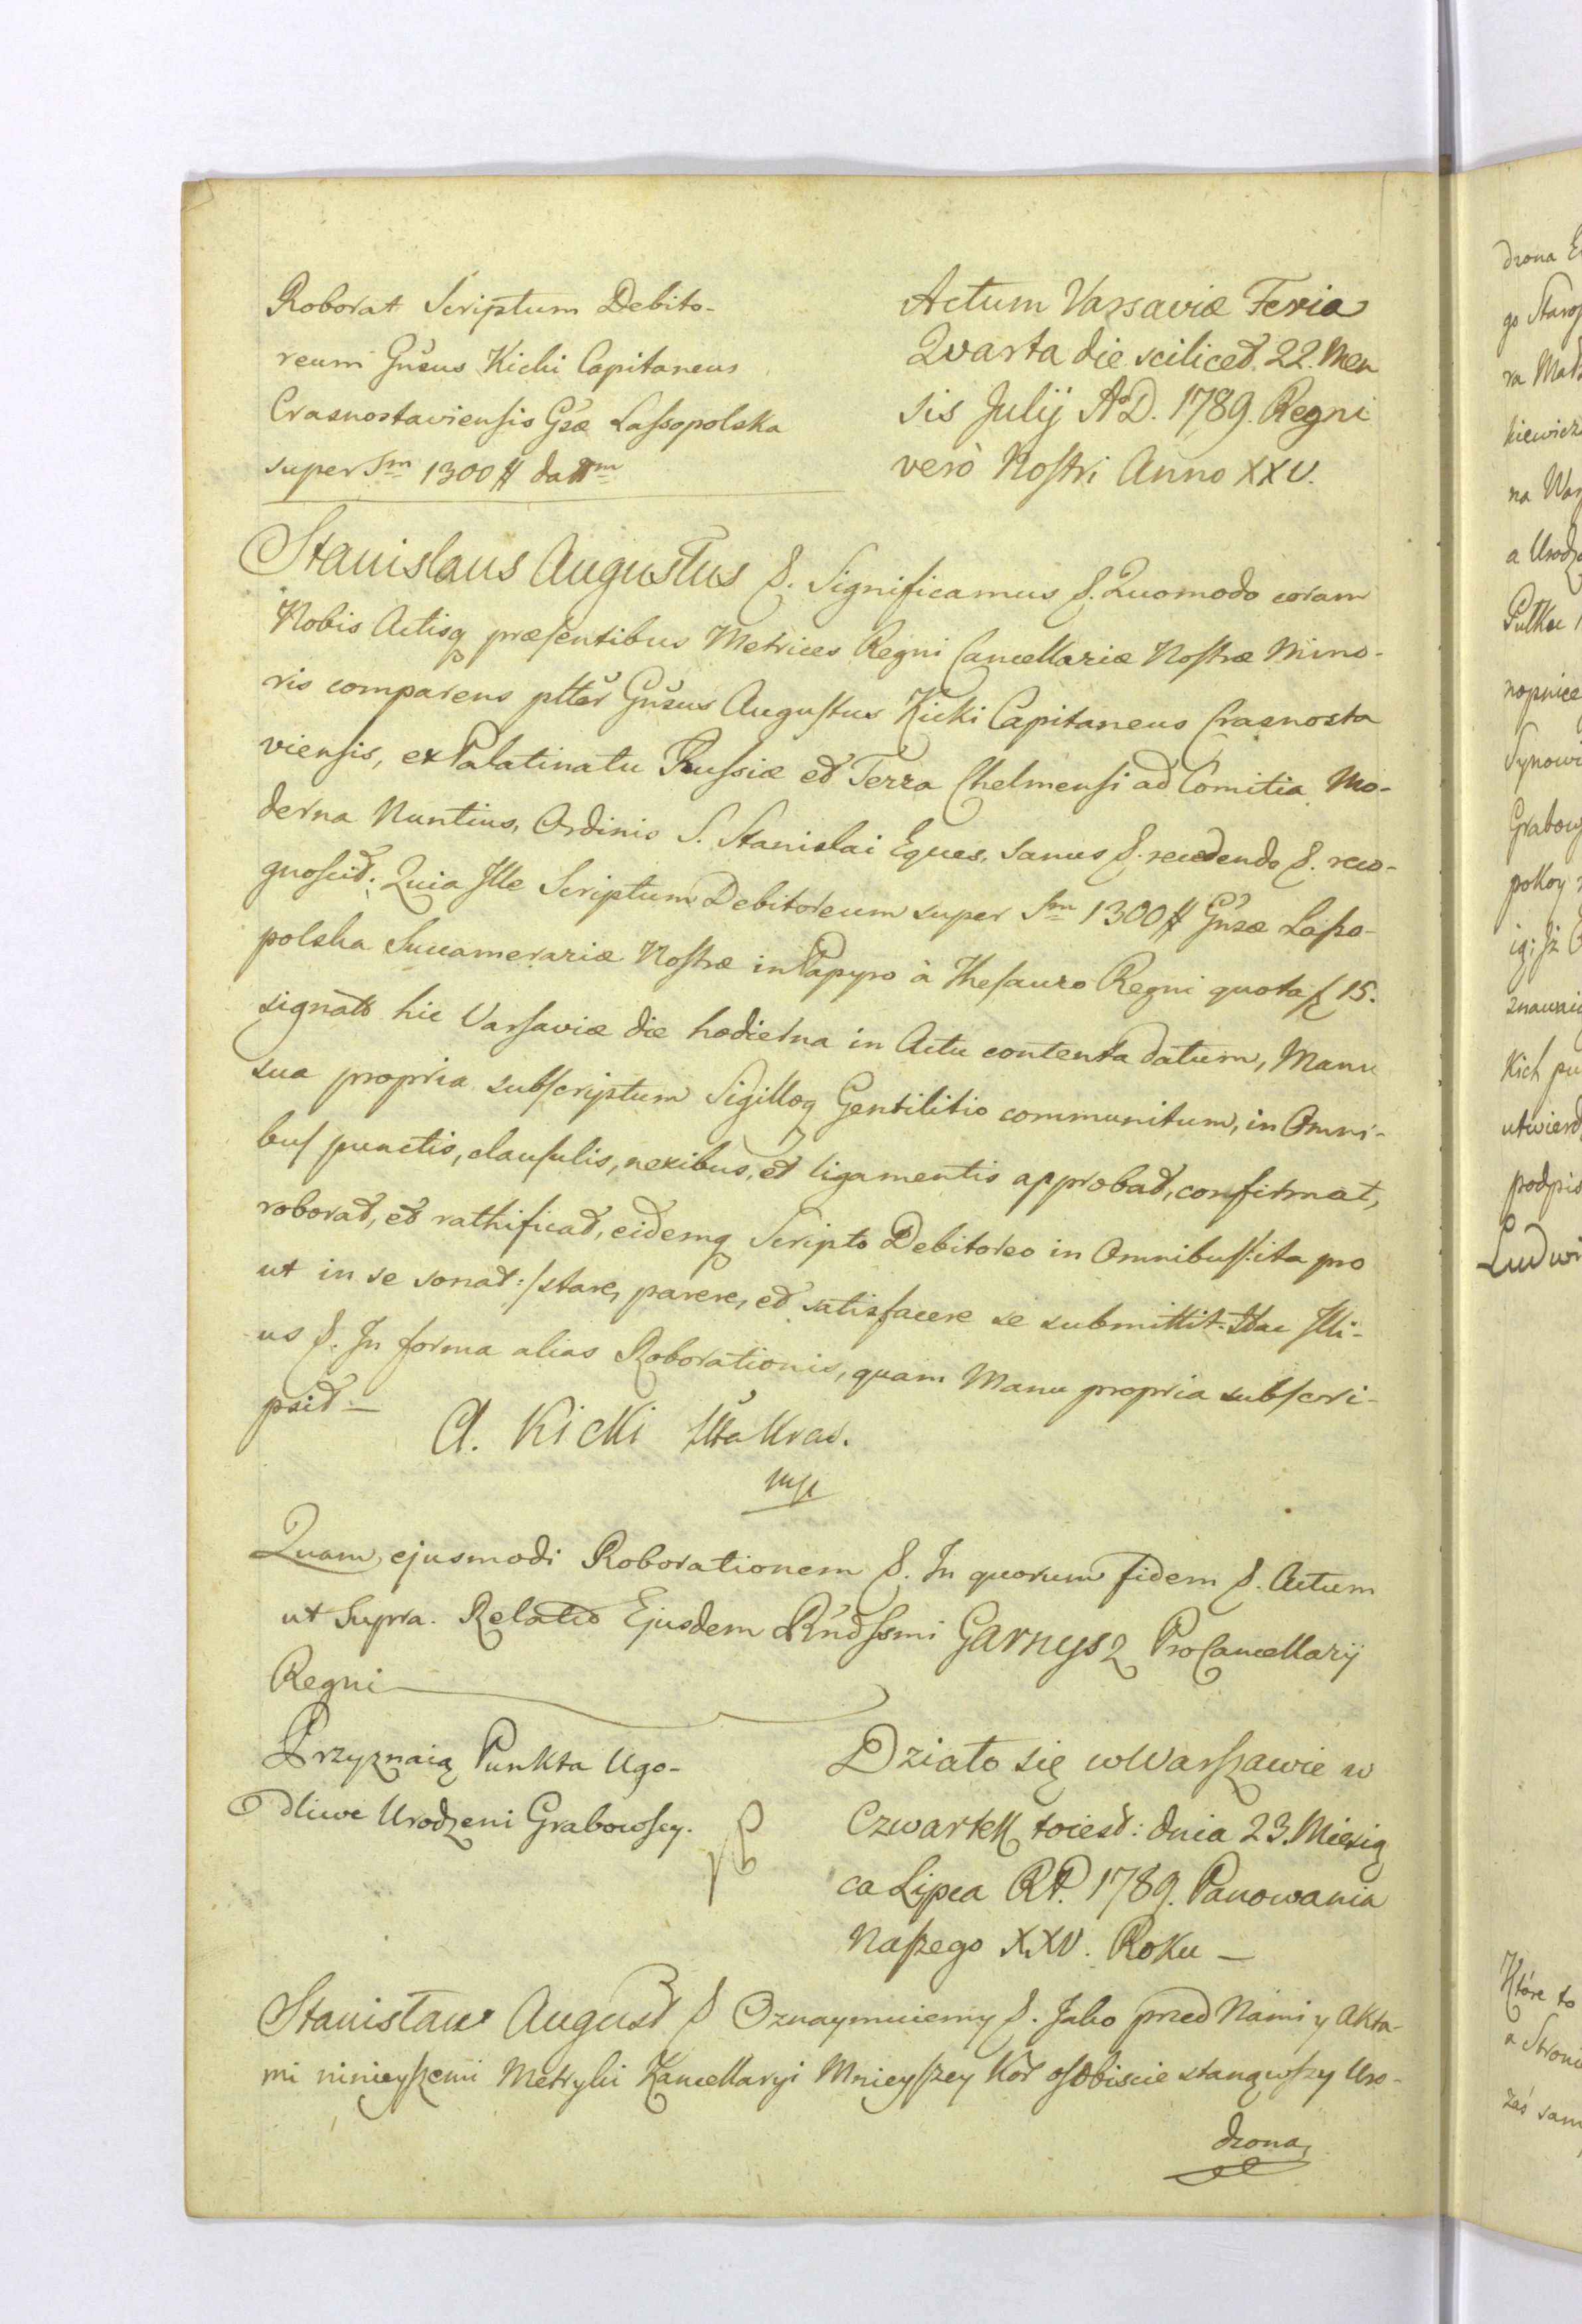 Roborat Scriptum Debito-
reum Gnsus Kicki Capitaneus
Crasnostaviensis Gsæ Lassopolska
super Sm 1300 # datum
Actum Varsaviæ Feria
Qvarta die scilicet 22. Men
sis Julij A.D. 1789. Regni
verò Nostri Anno XXV.
Stanislaus Augustus &. Significamus &. Quomodo coram
Nobis Actisq præsentibus Metrices Regni Cancellariæ Nostræ Mino-
ris comparens plter Gnsus Augustus Kicki Capitaneus Crasnosta
viensis, ex Palatinatu Russiæ et Terra Chelmensi ad Comitia Mo-
derna Nuntius, Ordinis S. Stanislai Eques, sanus &. recedendo &. reco-
gnoscit. Quia Ille Scriptum Debitoreum super Sm 1300 # Gnsæ Lasso-
polska Succamerariæ Nostræ in Papyro à Thesauro Regni quota f 15.
signato hic Varsaviæ die hodierna in Actu contenta datum, Manu
sua propria subscriptum Sigilloq Gentilitio communitum, in Omni-
bus punctis, clausulis, nexibus, et ligamentis approbat, confirmat,
roborat, et rathificat, eidemq Scripto Debitoreo in Omnibus /:ita pro
ut in se sonat:/ stare, parere, et satisfacere se submittit. Hac Illi-
us &. In forma alias Roborationis, quam Manu propria subscri-
psit —
A. Kicki Stta Kras.
mp
Quam ejusmodi Roborationem &. In quorum fidem &. Actum
ut Supra. Relatio Ejusdem Rndssmi Garnysz ProCancellarij
Regni
Przyznaią Punkta Ugo-
dliwe Urodzeni Grabowscy.
Działo się w Warszawie w
Czwartek toiest: dnia 23. Miesią
ca Lipca R.P. 1789. Panowania
Naszego XXV. Roku —
Stanisław August & Oznaymuiemy &. Jako przed Nami y Akta-
mi ninieyszemi Metryki Kancellaryi Mnieyszey Kor osobiscie stanąwszy Uro-
dzona